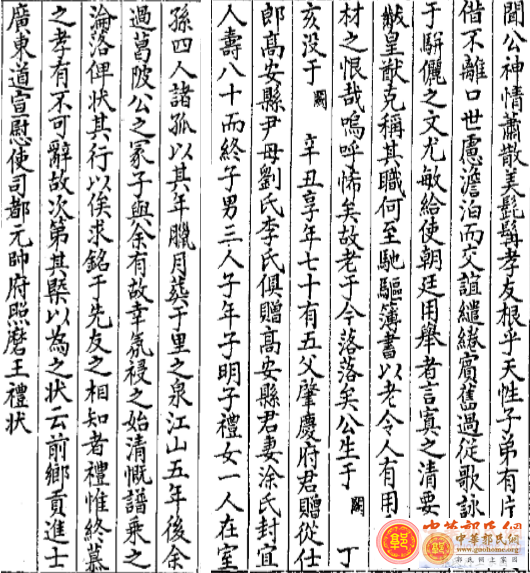 聞公神情蕭散美髭髯孝友根乎天性子弟有片
偕不離口世慮澹泊而交誼繾綣賓舊過從歌詠
于駢儷之文尤敏給使朝廷用舉者言寘之清要
黻皇猷克稱其職何至馳驅簿書以老令人有用
材之恨哉嗚呼悕矣故老于今落落矣公生于 闕 丁
亥没于 闕 辛丑享年七十有五父肇慶府君贈從仕
郎高安縣尹母劉氏李氏俱贈高安縣君妻涂氏封宜
人壽八十而終子男三人子年子明子禮女一人在室
孫四人諸孤以其年臘月葬于里之泉江山五年後余
過葛陂公之冢子與余有故幸氛祲之始清慨譜乗之
淪落俾状其行以俟求銘于先友之相知者禮惟終慕
之孝有不可辭故次第其槩以為之状云前鄉貢進士
廣東道宣慰使司都元帥府照磨王禮状
中華郜民網
www.gaohome.org